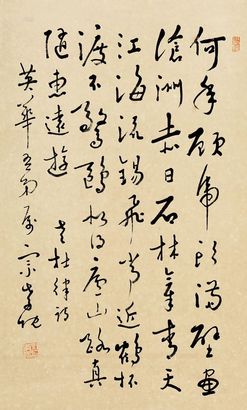 何年顧虎頭滿壁畫
滄洲赤日石林氣青天
江海流錫飛常近鶴杯
渡不驚鷗似得廬山路真
隨惠遠遊 老杜律詩
英華吾弟屬 宗孝忱